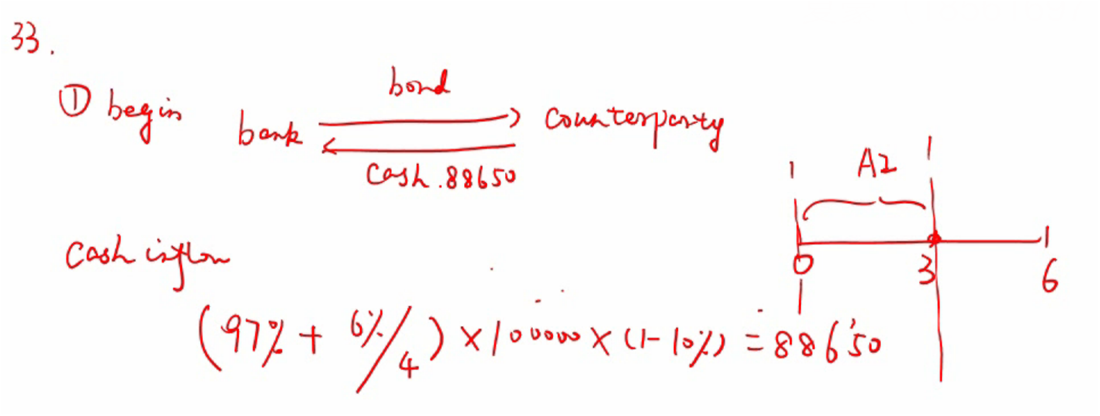 33.
① begin
bond
bank
counterparty
cash.88650
1
AI
1
0
3
6
cash inflow
(97% + 6%/4) × 100000 × (1-10%) = 88650